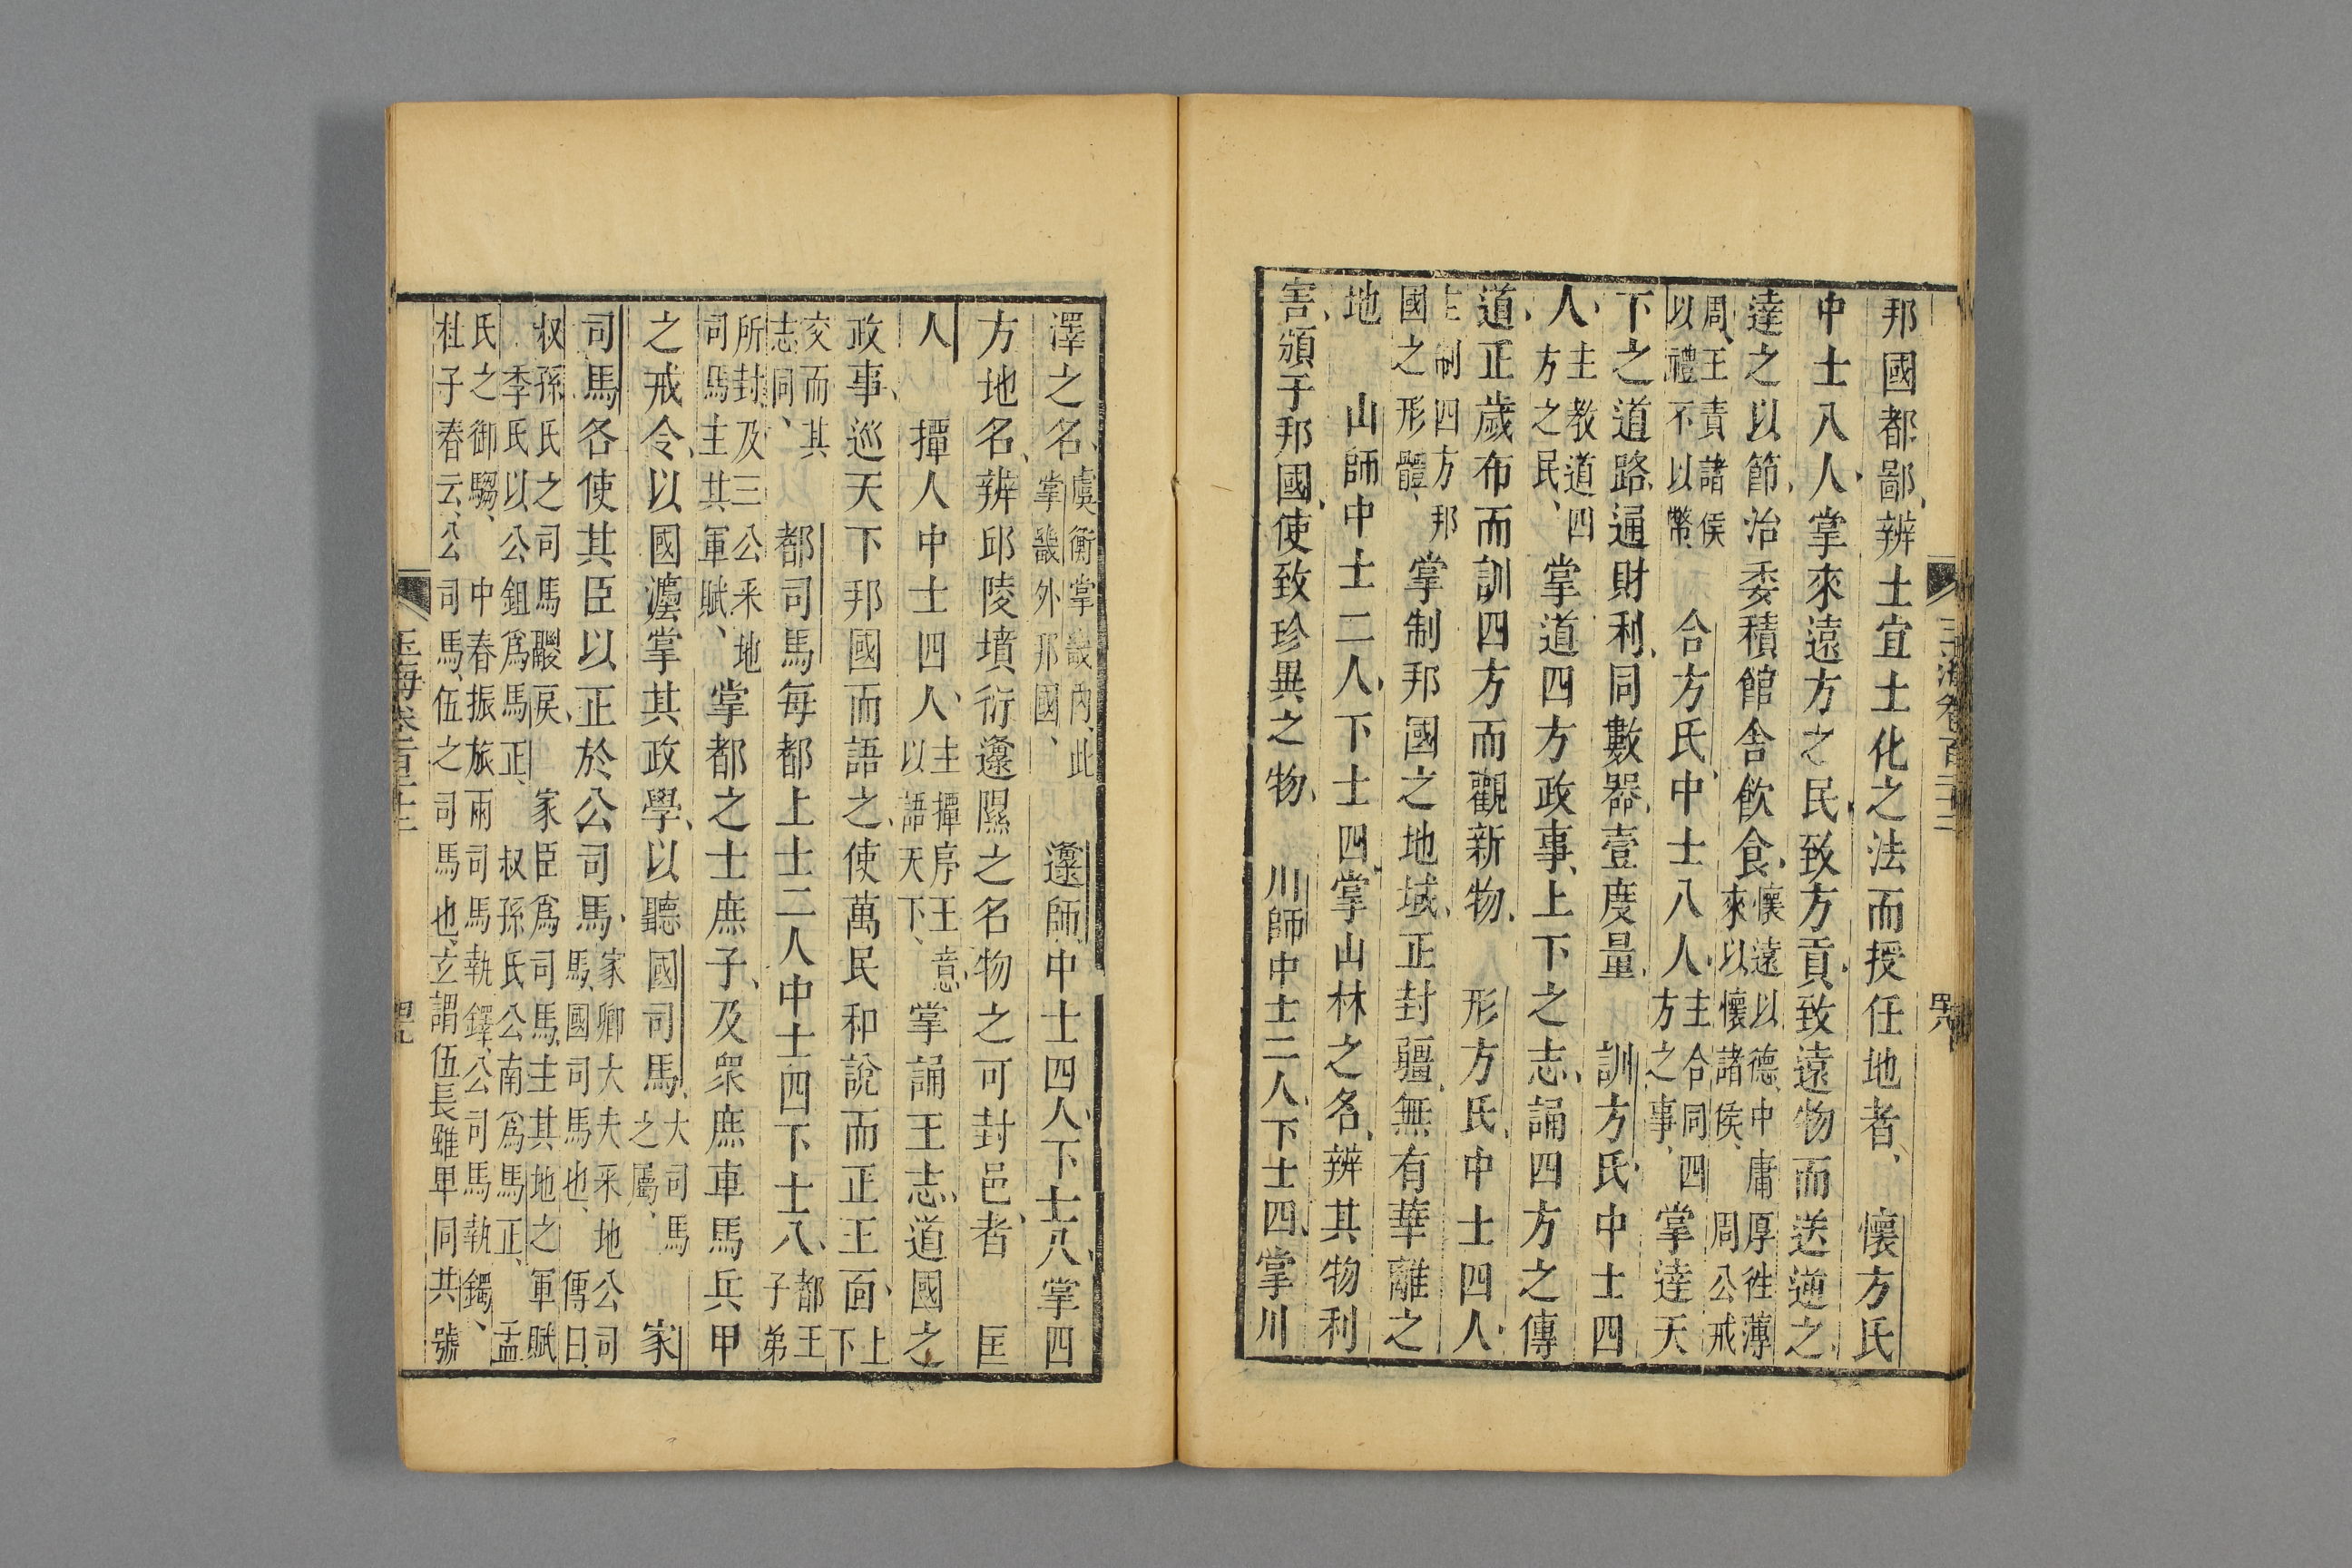 邦國都鄙、辨土宜土化之法而授任地者、　懷方氏
中士八人、掌來遠方之民、致方貢、致遠物而送逆之、
達之以節、治委積館舍飲食、懷遠以德、中庸厚往薄來以懷諸侯、周公戒
周王責諸侯以禮不以幣、　合方氏、中士八人、主合同四方之事、掌達天
下之道路、通財利、同數器、壹度量、　訓方氏、中士四
人、主教道四方之民、掌道四方政事、上下之志、誦四方之傳
道、正歲布而訓四方而觀新物、　形方氏、中士四人、
主制四方邦國之形體、掌制邦國之地域、正封疆、無有華離之
地　山師中士二人、下士四、掌山林之名、辨其物利
害、頒于邦國、使致珍異之物、　川師中士二人、下士四、掌川
澤之名、虞衡掌畿內、此掌畿外邦國、　邍師、中士四人、下士八、掌四
方地名、辨邱陵墳衍邍隰之名物之可封邑者、　匡
人　撢人中士四人、主撢序王意、以語天下、掌誦王志、道國之
政事、巡天下邦國而語之、使萬民和說而正王面、上下
交而其志同、　都司馬每都上士二人中士四下士八、都王子弟
所封及三公采地司馬主其軍賦、掌都之士庶子、及眾庶車馬兵甲
之戒令、以國灋掌其政學、以聽國司馬、大司馬之屬、　家
司馬各使其臣以正於公司馬、家卿大夫采地公司馬、國司馬也、傳曰、
叔孫氏之司馬鬷戾、　家臣爲司馬、主其地之軍賦
季氏以公鉏爲馬正、　叔孫氏公南爲馬正、　孟
氏之御騶、　中春振旅兩司馬執鐸、公司馬執鐲、
杜子春云、公司馬、伍之司馬也、玄謂伍長雖卑同其號